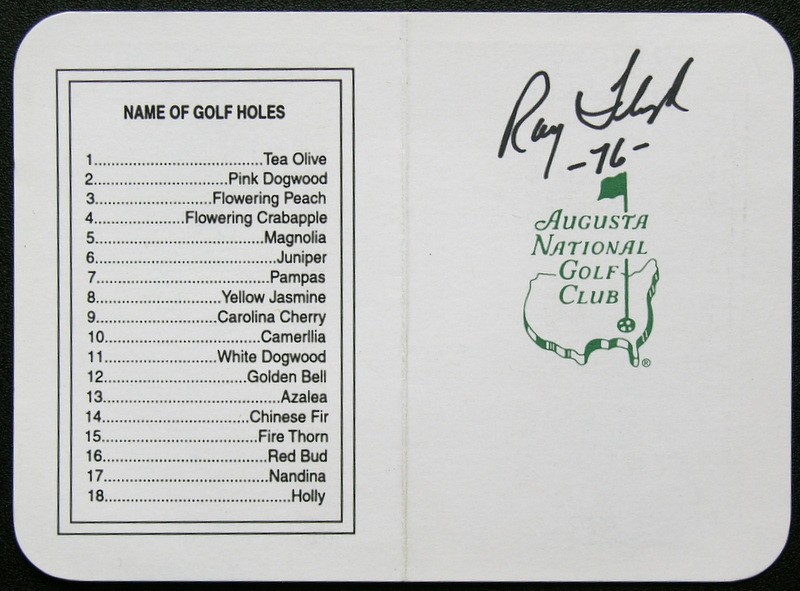 NAME OF GOLF HOLES
1..........................................Tea Olive
2.................................Pink Dogwood
3.............................Flowering Peach
4......................Flowering Crabapple
5..........................................Magnolia
6.............................................Juniper
7...........................................Pampas
8...............................Yellow Jasmine
9..............................Carolina Cherry
10.......................................Camerllia
11............................White Dogwood
12...................................Golden Bell
13............................................Azalea
14...................................Chinese Fir
15.....................................Fire Thorn
16.........................................Red Bud
17.........................................Nandina
18...............................................Holly
Ray Floyd
-76-
AUGUSTA
NATIONAL
GOLF
CLUB
®